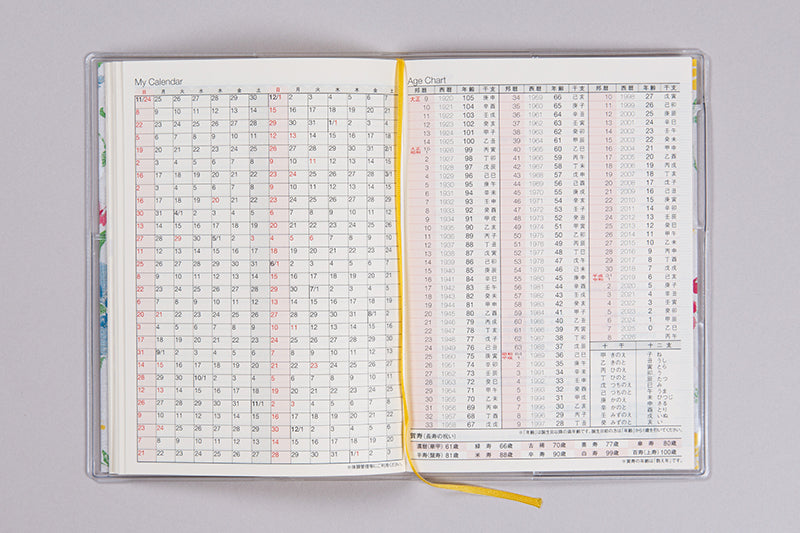 My Calendar
日 月 火 水 木 金 土 日 月 火 水 木 金 土
11/24 25 26 27 28 29 30 12/1 2 3 4 5 6 7
8 9 10 11 12 13 14 15 16 17 18 19 20 21
22 23 24 25 26 27 28 29 30 31 1/1 2 3 4
5 6 7 8 9 10 11 12 13 14 15 16 17 18
19 20 21 22 23 24 25 26 27 28 29 30 31 2/1
2 3 4 5 6 7 8 9 10 11 12 13 14 15
16 17 18 19 20 21 22 23 24 25 26 27 28 3/1
2 3 4 5 6 7 8 9 10 11 12 13 14 15
16 17 18 19 20 21 22 23 24 25 26 27 28 29
30 31 4/1 2 3 4 5 6 7 8 9 10 11 12
13 14 15 16 17 18 19 20 21 22 23 24 25 26
27 28 29 30 5/1 2 3 4 5 6 7 8 9 10
11 12 13 14 15 16 17 18 19 20 21 22 23 24
25 26 27 28 29 30 31 6/1 2 3 4 5 6 7
8 9 10 11 12 13 14 15 16 17 18 19 20 21
22 23 24 25 26 27 28 29 30 7/1 2 3 4 5
6 7 8 9 10 11 12 13 14 15 16 17 18 19
20 21 22 23 24 25 26 27 28 29 30 31 8/1 2
3 4 5 6 7 8 9 10 11 12 13 14 15 16
17 18 19 20 21 22 23 24 25 26 27 28 29 30
31 9/1 2 3 4 5 6 7 8 9 10 11 12 13
14 15 16 17 18 19 20 21 22 23 24 25 26 27
28 29 30 10/1 2 3 4 5 6 7 8 9 10 11
12 13 14 15 16 17 18 19 20 21 22 23 24 25
26 27 28 29 30 31 11/1 2 3 4 5 6 7 8
9 10 11 12 13 14 15 16 17 18 19 20 21 22
23 24 25 26 27 28 29 30 12/1 2 3 4 5 6
7 8 9 10 11 12 13 14 15 16 17 18 19 20
21 22 23 24 25 26 27 28 29 30 31
※体調管理等にご利用ください。
Age Chart
邦暦 西暦 年齢 干支 邦暦 西暦 年齢 干支 邦暦 西暦 年齢 干支
大正 9 1920 105 庚申 34 1959 66 己亥 10 1998 27 戊寅
10 1921 104 辛酉 35 1960 65 庚子 11 1999 26 己卯
11 1922 103 壬戌 36 1961 64 辛丑 12 2000 25 庚辰
12 1923 102 癸亥 37 1962 63 壬寅 13 2001 24 辛巳
13 1924 101 甲子 38 1963 62 癸卯 14 2002 23 壬午
14 1925 100 乙丑 39 1964 61 甲辰 15 2003 22 癸未
大正 15 昭和 1 1926 99 丙寅 40 1965 60 乙巳 16 2004 21 甲申
2 1927 98 丁卯 41 1966 59 丙午 17 2005 20 乙酉
3 1928 97 戊辰 42 1967 58 丁未 18 2006 19 丙戌
4 1929 96 己巳 43 1968 57 戊申 19 2007 18 丁亥
5 1930 95 庚午 44 1969 56 己酉 20 2008 17 戊子
6 1931 94 辛未 45 1970 55 庚戌 21 2009 16 己丑
7 1932 93 壬申 46 1971 54 辛亥 22 2010 15 庚寅
8 1933 92 癸酉 47 1972 53 壬子 23 2011 14 辛卯
9 1934 91 甲戌 48 1973 52 癸丑 24 2012 13 壬辰
10 1935 90 乙亥 49 1974 51 甲寅 25 2013 12 癸巳
11 1936 89 丙子 50 1975 50 乙卯 26 2014 11 甲午
12 1937 88 丁丑 51 1976 49 丙辰 27 2015 10 乙未
13 1938 87 戊寅 52 1977 48 丁巳 28 2016 9 丙申
14 1939 86 己卯 53 1978 47 戊午 29 2017 8 丁酉
15 1940 85 庚辰 54 1979 46 己未 30 2018 7 戊戌
16 1941 84 辛巳 55 1980 45 庚申 平成 31 令和 1 2019 6 己亥
17 1942 83 壬午 56 1981 44 辛酉 2 2020 5 庚子
18 1943 82 癸未 57 1982 43 壬戌 3 2021 4 辛丑
19 1944 81 甲申 58 1983 42 癸亥 4 2022 3 壬寅
20 1945 80 乙酉 59 1984 41 甲子 5 2023 2 癸卯
21 1946 79 丙戌 60 1985 40 乙丑 6 2024 1 甲辰
22 1947 78 丁亥 61 1986 39 丙寅 7 2025 0 乙巳
23 1948 77 戊子 62 1987 38 丁卯 8 2026 丙午
24 1949 76 己丑 63 1988 37 戊辰 十干 十二支
25 1950 75 庚寅 昭和 64 平成 1 1989 36 己巳 甲 きのえ 子 ね
26 1951 74 辛卯 2 1990 35 庚午 乙 きのと 丑 うし
27 1952 73 壬辰 3 1991 34 辛未 丙 ひのえ 寅 とら
28 1953 72 癸巳 4 1992 33 壬申 丁 ひのと 卯 う
29 1954 71 甲午 5 1993 32 癸酉 戊 つちのえ 辰 たつ
30 1955 70 乙未 6 1994 31 甲戌 己 つちのと 巳 み
31 1956 69 丙申 7 1995 30 乙亥 庚 かのえ 午 うま
32 1957 68 丁酉 8 1996 29 丙子 辛 かのと 未 ひつじ
33 1958 67 戊戌 9 1997 28 丁丑 壬 みずのえ 申 さる
癸 みずのと 酉 とり
戌 いぬ
亥 い
※「年齢」は誕生日以降の満年齢です。誕生日前の方は「年齢」から1歳を引いてください。
賀寿(長寿の祝い)
還暦(華甲)61歳 緑寿 66歳 古稀 70歳 喜寿 77歳 傘寿 80歳
半寿(盤寿)81歳 米寿 88歳 卒寿 90歳 白寿 99歳 百寿(上寿)100歳
※賀寿の年齢は「数え年」です。